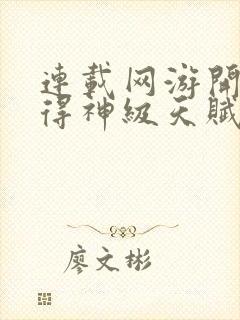 連載网游開
得神級天賦
廖文彬